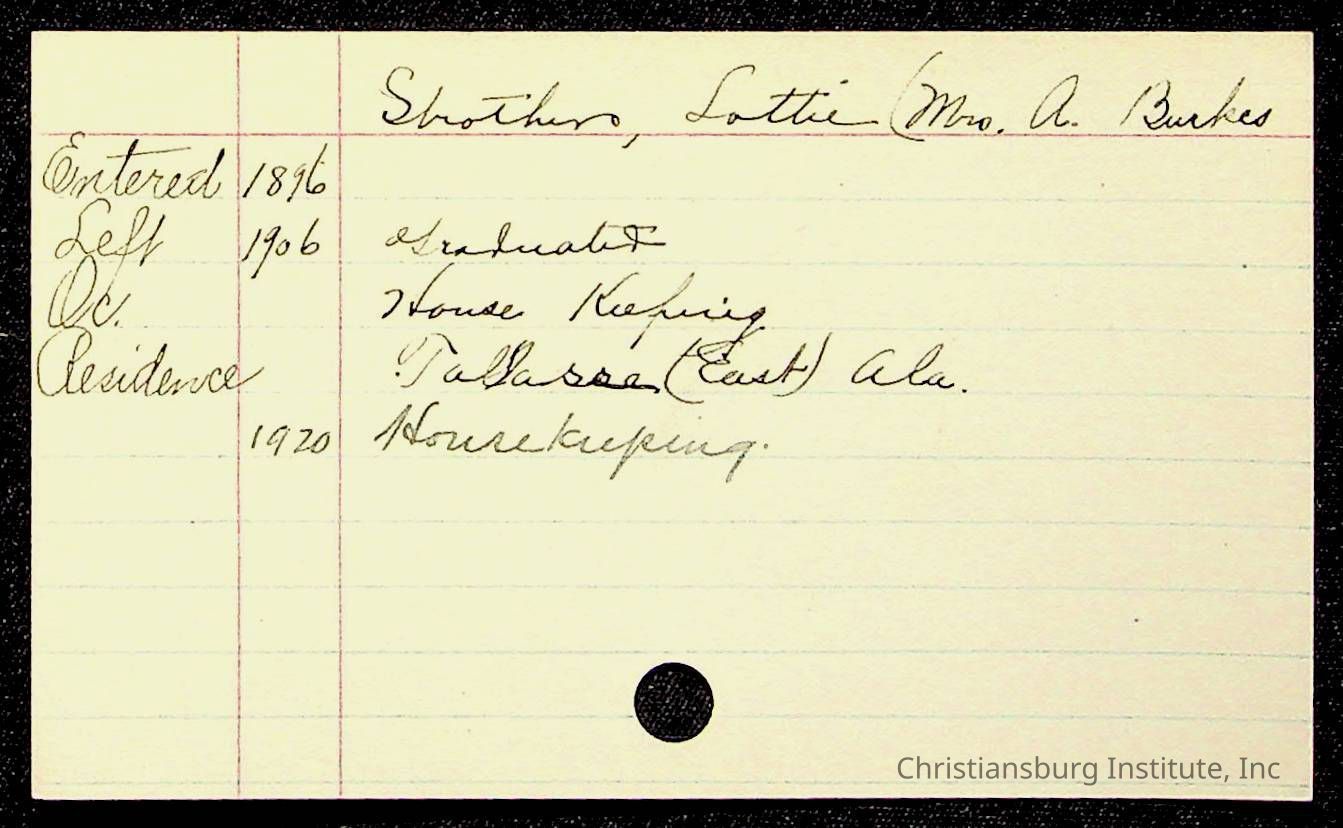 Strothers, Lottie (Mrs. A. Burkes
Entered 1896
Left 1906 Graduated
Oc. House Keeping
Residence Tallassee (East) Ala.
1920 Housekeeping.
Christiansburg Institute, Inc